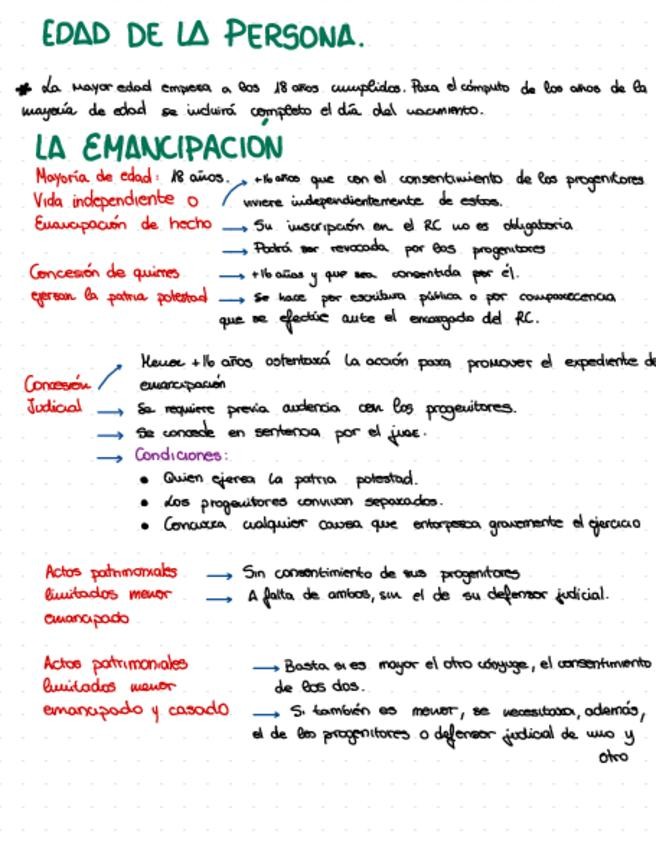 EDAD DE LA PERSONA.
* La mayor edad empieza a los 18 años cumplidos. Para el cómputo de los años de la
mayoría de edad se incluirá completo el día del nacimiento.
LA EMANCIPACIÓN
Mayoría de edad: 18 años.
Vida independiente o
Emancipación de hecho
→ +16 años que con el consentimiento de los progenitores
viviere independientemente de estos.
→ Su inscripción en el RC no es obligatoria
→ Podrá ser revocada por los progenitores
Concesión de quienes
ejerzan la patria potestad
→ +16 años y que sea consentida por él.
→ Se hace por escritura pública o por comparecencia
que se efectúe ante el encargado del RC.
Concesión
Judicial
→ Menor +16 años ostentará la acción para promover el expediente de
emancipación
→ Se requiere previa audiencia con los progenitores.
→ Se concede en sentencia por el juez.
→ Condiciones:
• Quien ejerza la patria potestad.
• Los progenitores convivan separados.
• Concurra cualquier causa que entorpezca gravemente el ejercicio
Actos patrimoniales
limitados menor
emancipado
→ Sin consentimiento de sus progenitores
→ A falta de ambos, sin el de su defensor judicial.
Actos patrimoniales
limitados menor
emancipado y casado
→ Basta si es mayor el otro cónyuge, el consentimiento
de los dos.
→ Si también es menor, se necesitará, además,
el de los progenitores o defensor judicial de uno y
otro